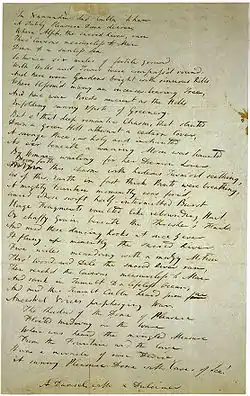 In Xannadù did Cubla Khan
A stately Pleasure-Dome decree;
Where Alph, the sacred River, ran
Thro' Caverns measureless to Man
Down to a sunless Sea.
So twice six miles of fertile ground
With Walls and Towers were compass'd round:
And here were Gardens bright with sinuous Rills
Where blossom'd many an incense-bearing Tree,
And here were Forests ancient as the Hills
Enfolding sunny Spots of Greenery.
But o! that deep romantic Chasm, that slanted
Down a green Hill athwart a cedarn Cover,
A savage Place, as holy and inchanted
As e'er beneath a waning Moon was haunted
By Woman wailing for her Daemon Lover:
From forth this Chasm with hideous Turmoil seething,
As if this Earth in fast thick Pants were breathing,
A mighty Fountain momently was forc'd,
Amid whose swift half-intermitted Burst
Huge Fragments vaulted like rebounding Hail,
Or chaffy Grain beneath the Thresher's Flail.
And mid these dancing Rocks at once & ever
It flung up momently the sacred River.
Five miles meandring with a mazy Motion
Thro' Wood and Dale the sacred River ran,
Then reach'd the Caverns measureless to Man
And sank in Tumult to a lifeless Ocean;
And mid this Tumult Cubla heard from
Ancestral Voices prophesying War.
The Shadow of the Dome of Pleasure
Floated midway on the Wave
Where was heard the mingled Measure
From the Fountain and the Cave.
It was a miracle of rare Device,
A sunny Pleasure-Dome with Caves of Ice!
A Damsel with a Dulcimer